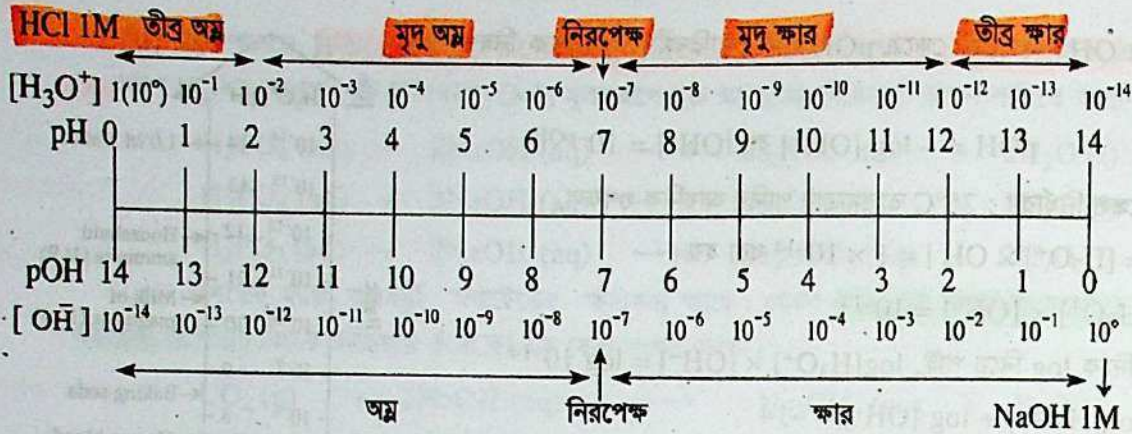 HCl 1M তীব্র অম্ল মৃদু অম্ল নিরপেক্ষ মৃদু ক্ষার তীব্র ক্ষার
[H₃O⁺] 1(10°) 10⁻¹ 10⁻² 10⁻³ 10⁻⁴ 10⁻⁵ 10⁻⁶ 10⁻⁷ 10⁻⁸ 10⁻⁹ 10⁻¹⁰ 10⁻¹¹ 10⁻¹² 10⁻¹³ 10⁻¹⁴
pH 0 1 2 3 4 5 6 7 8 9 10 11 12 13 14
pOH 14 13 12 11 10 9 8 7 6 5 4 3 2 1 0
[OH̄] 10⁻¹⁴ 10⁻¹³ 10⁻¹² 10⁻¹¹ 10⁻¹⁰ 10⁻⁹ 10⁻⁸ 10⁻⁷ 10⁻⁶ 10⁻⁵ 10⁻⁴ 10⁻³ 10⁻² 10⁻¹ 10°
অম্ল নিরপেক্ষ ক্ষার NaOH 1M